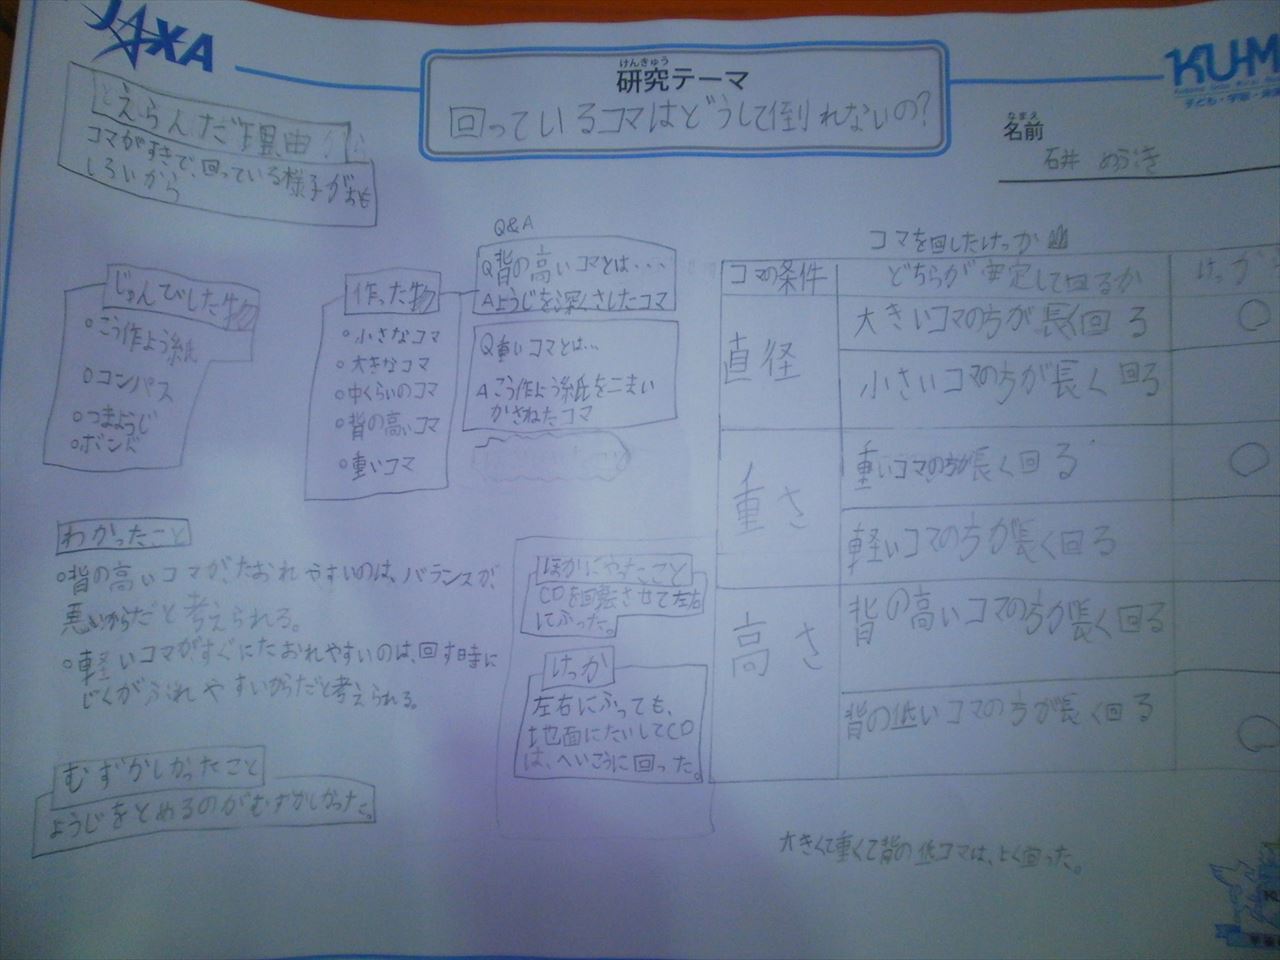 JAXA
けんきゅう
研究テーマ
回っているコマはどうして倒れないの?
KU-M
子ども・宇宙・未来
なまえ
名前
石井
えらんだ理由
コマがすきで、回っている様子がおも
しろいから
じゅんびした物
○こう作よう紙
○コンパス
○つまようじ
○ボンド
作った物
○小さなコマ
○大きなコマ
○中くらいのコマ
○背の高いコマ
○重いコマ
Q&A
Q背の高いコマとは・・・
Aようじを深くさしたコマ
Q重いコマとは…
Aこう作よう紙を二まい
かさねたコマ
コマを回したけっか
コマの条件
どちらが安定して回るか
けっか
直径
大きいコマの方が長く回る
○
小さいコマの方が長く回る
重さ
重いコマの方が長く回る
○
軽いコマの方が長く回る
高さ
背の高いコマの方が長く回る
背の低いコマの方が長く回る
○
大きくて重くて背の低コマは、よく回った。
わかったこと
○背の高いコマが、たおれやすいのは、バランスが、
悪いからだと考えられる。
○軽いコマがすぐにたおれやすいのは、回す時に
じくがぶれやすいからだと考えられる。
むずかしかったこと
ようじをとめるのがむずかしかった。
ほかにやったこと
CDを回転させて左右
にふった。
けっか
左右にふっても、
地面にたいしてCD
は、へいこうに回った。